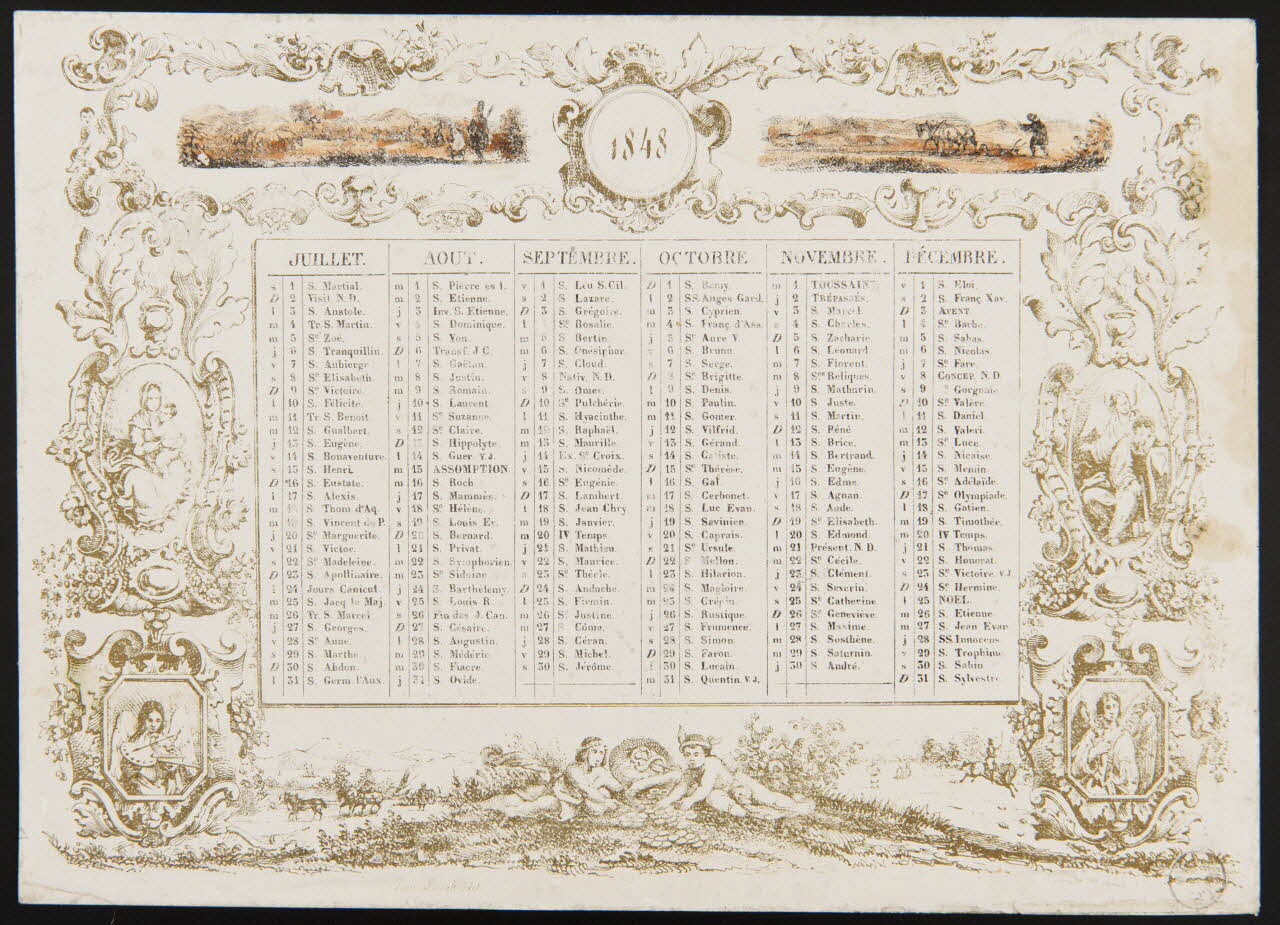 1848
JUILLET.
s 1 S. Martial.
D 2 Visit N.D.
l 3 S. Anatole.
m 4 Tr. S. Martin.
m 5 Se Zoé.
j 6 S. Tranquillin.
v 7 S. Aubierge
s 8 Se Elisabeth.
D 9 Se Victoire.
l 10 S. Félicite.
m 11 Tr. S. Benoit
m 12 S. Gualbert.
j 13 S. Eugène.
v 14 S. Bonaventure.
s 15 S. Henri.
D 16 S. Eustate.
l 17 S. Alexis.
m 18 S. Thom d'Aq.
m 19 S. Vincent de P.
j 20 Se Marguerite.
v 21 S. Victor.
s 22 Se Madeleine.
D 23 S. Apollinaire.
l 24 Jours Canicul.
m 25 S. Jacq le Maj.
m 26 Tr. S. Marcel
j 27 S. Georges.
v 28 Se Anne.
s 29 S. Marthe.
D 30 S. Abdon.
l 31 S. Germ. l'Aux.
AOUT.
m 1 S. Pierre ès l.
m 2 S. Etienne.
j 3 Inv. S. Etienne.
v 4 S. Dominique.
s 5 S. Yon.
D 6 Transf. J.C.
l 7 S. Gaëtan.
m 8 S. Justin.
m 9 S. Romain.
j 10 S. Laurent
v 11 Se Suzanne.
s 12 Se Claire.
D 13 S. Hippolyte.
l 14 S. Guer. V.J.
m 15 ASSOMPTION
m 16 S. Roch
j 17 S. Mammès.
v 18 Se Hélène.
s 19 S. Louis Ev.
D 20 S. Bernard.
l 21 S. Privat.
m 22 S. Symphorien.
m 23 Se Sidoine
j 24 S. Barthélemy.
v 25 S. Louis R.
s 26 Fin des J. Can.
D 27 S. Césaire.
l 28 S. Augustin.
m 29 S. Médéric.
m 30 S. Fiacre.
j 31 S. Ovide.
SEPTEMBRE.
v 1 S. Leu S. Gil.
s 2 S. Lazare.
D 3 S. Grégoire.
l 4 Se Rosalie.
m 5 S. Bertin.
m 6 S. Onésiphor.
j 7 S. Cloud.
v 8 Nativ. N.D.
s 9 S. Omer.
D 10 Se Pulchérie.
l 11 S. Hyacinthe.
m 12 S. Raphaël.
m 13 S. Maurille.
j 14 Ex. Se Croix.
v 15 S. Nicomède.
s 16 Se Eugénie.
D 17 S. Lambert
l 18 S. Jean Chry
m 19 S. Janvier.
m 20 IV Temps
j 21 S. Mathieu.
v 22 S. Maurice.
s 23 Se Thècle.
D 24 S. Andoche.
l 25 S. Firmin.
m 26 Se Justine.
m 27 S. Côme.
j 28 S. Céran.
v 29 S. Michel.
s 30 S. Jérôme.
OCTOBRE
D 1 S. Remy.
l 2 SS. Anges Gard.
m 3 S. Cyprien.
m 4 S. Franç. d'Ass.
j 5 Se Aure V.
v 6 S. Bruno.
s 7 S. Serge.
D 8 Se Brigitte.
l 9 S. Denis.
m 10 S. Paulin.
m 11 S. Gomer.
j 12 S. Vilfrid.
v 13 S. Gérand.
s 14 S. Caliste.
D 15 Se Thérèse.
l 16 S. Gal.
m 17 S. Cerbonet.
m 18 S. Luc Evan.
j 19 S. Savinien.
v 20 S. Caprais.
s 21 Se Ursule.
D 22 S. Mellon.
l 23 S. Hilarion.
m 24 S. Magloire
m 25 S. Crépin.
j 26 S. Rustique
v 27 S. Frumence
s 28 S. Simon
D 29 S. Faron.
l 30 S. Lucain.
m 31 S. Quentin. V.J.
NOVEMBRE.
m 1 TOUSSAINT
j 2 TRÉPASSÉS.
v 3 S. Marcel.
s 4 S. Charles.
D 5 S. Zacharie.
l 6 S. Léonard
m 7 S. Florent.
m 8 Ses Reliques.
j 9 S. Mathurin.
v 10 S. Juste.
s 11 S. Martin.
D 12 S. Réné
l 13 S. Brice.
m 14 S. Bertrand.
m 15 S. Eugène.
j 16 S. Edme.
v 17 S. Agnan.
s 18 S. Aude.
D 19 Se Elisabeth.
l 20 S. Edmond.
m 21 Présent. N.D.
m 22 Se Cécile.
j 23 S. Clément.
v 24 S. Severin.
s 25 Se Catherine
D 26 Se Geneviève.
l 27 S. Maxime.
m 28 S. Sosthène.
m 29 S. Saturnin.
j 30 S. André.
DÉCEMBRE.
v 1 S. Eloi
s 2 S. Franç. Xav.
D 3 AVENT
l 4 Se Barbe.
m 5 S. Sabas.
m 6 S. Nicolas
j 7 Se Fare
v 8 CONCEP. N.D
s 9 Se Gorgonie
D 10 Se Valère.
l 11 S. Daniel
m 12 S. Valeri.
m 13 Se Luce.
j 14 S. Nicaise.
v 15 S. Memin.
s 16 Se Adélaïde.
D 17 Se Olympiade.
l 18 S. Gatien.
m 19 S. Timothée.
m 20 IV Temps.
j 21 S. Thomas
v 22 S. Honorat.
s 23 Se Victoire. V.J
D 24 Se Hermine.
l 25 NOEL.
m 26 S. Etienne
m 27 S. Jean Evan
j 28 SS. Innocens
v 29 S. Trophime
s 30 S. Sabin
D 31 S. Sylvestre